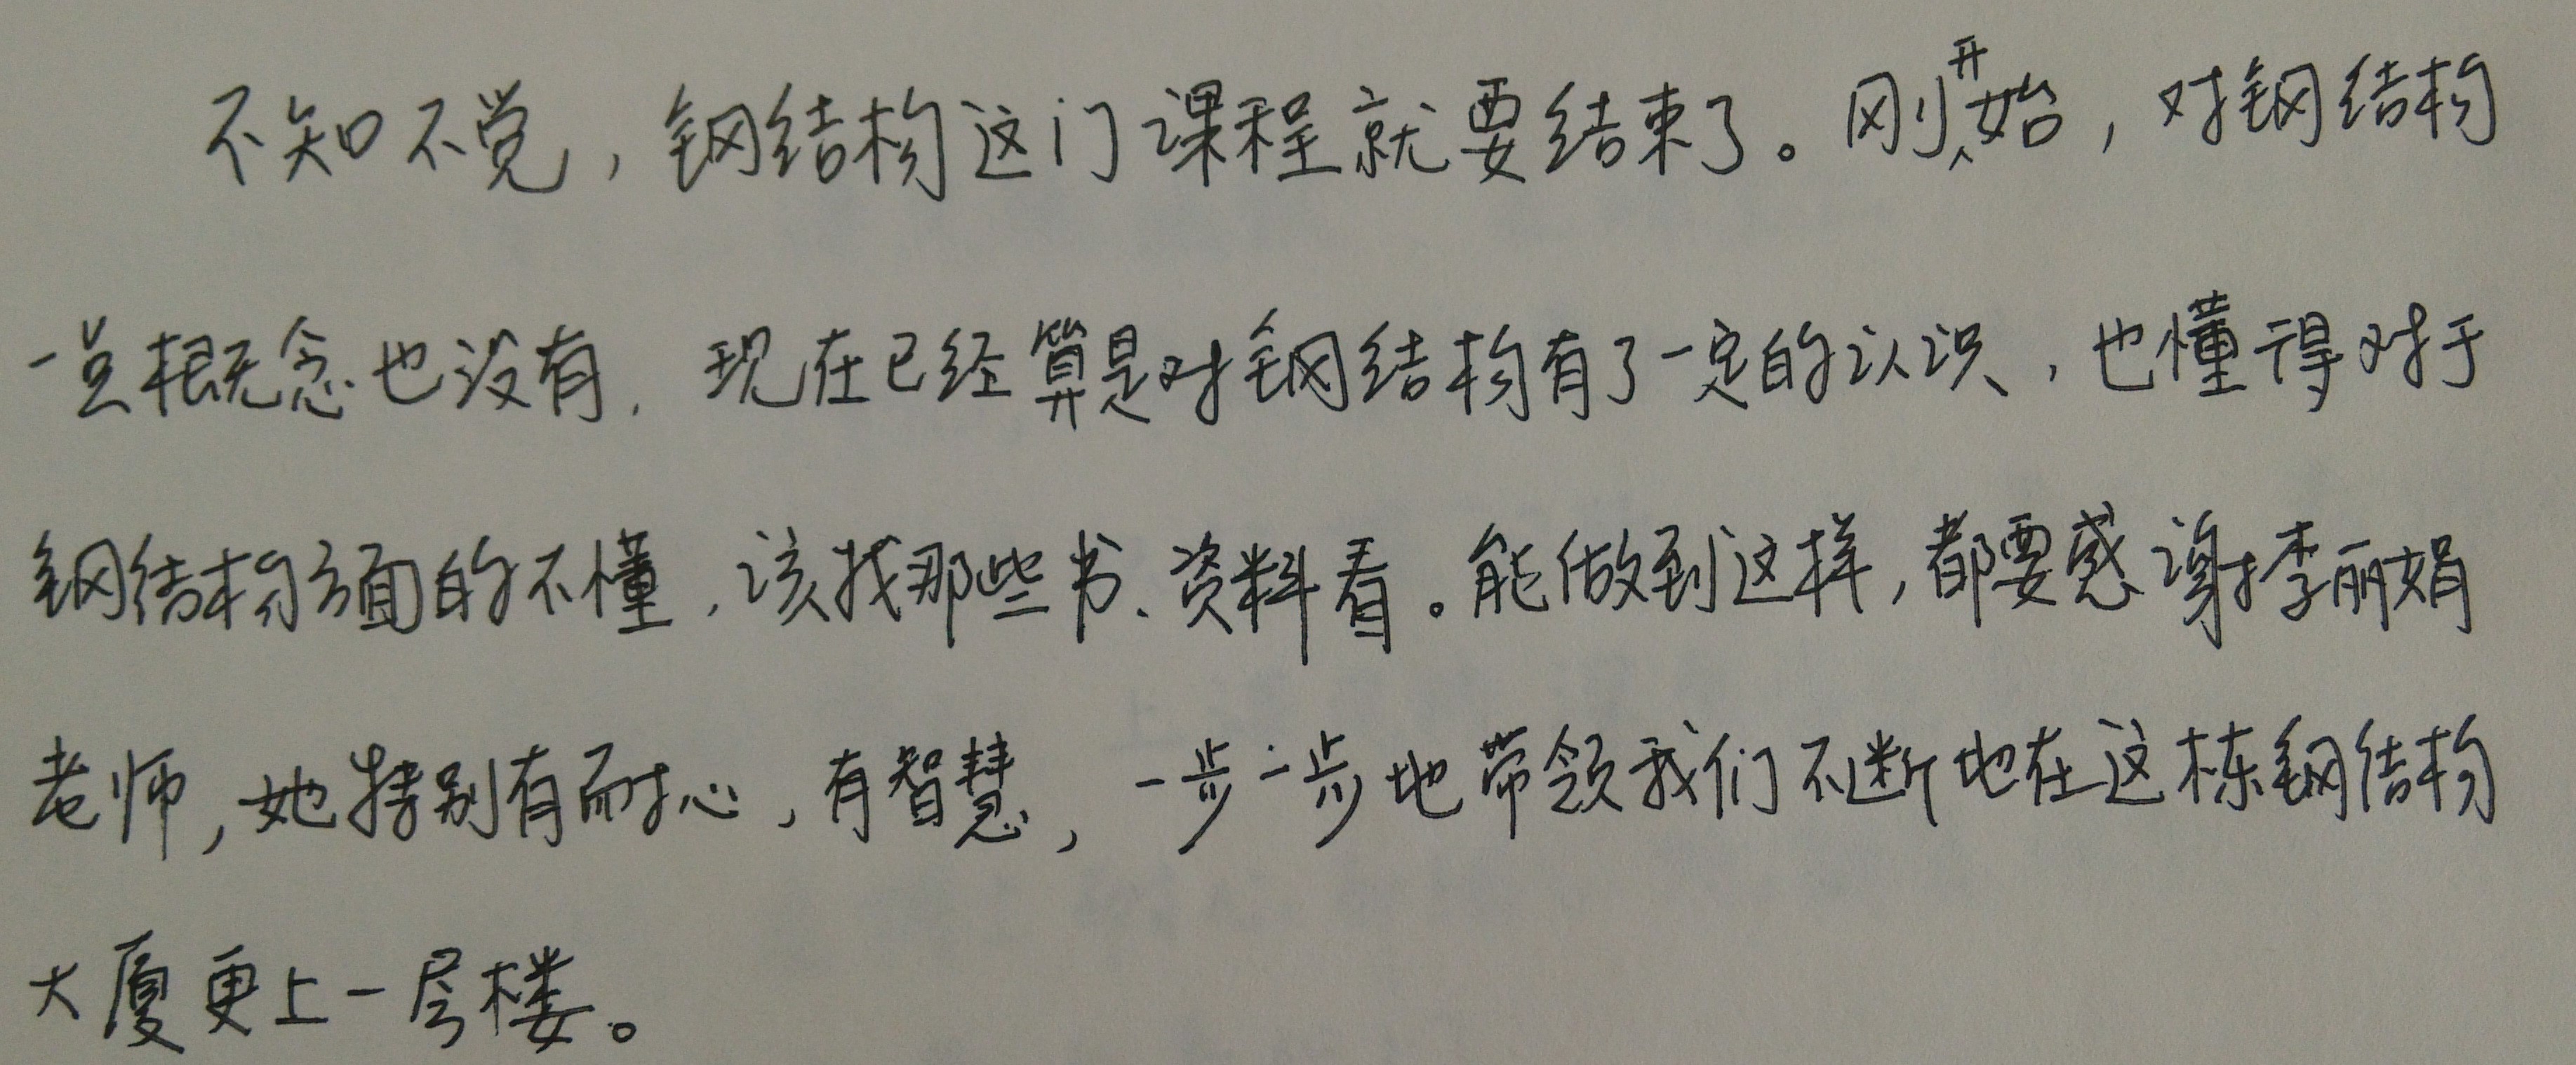 不知不觉，钢结构这门课程就要结束了。刚开始，对钢结构
一点概念也没有，现在已经算是对钢结构有了一定的认识，也懂得对于
钢结构方面的不懂，该找那些书、资料看。能做到这样，都要感谢李丽娟
老师，她特别有耐心，有智慧，一步一步地带领我们不断地在这栋钢结构
大厦更上一层楼。